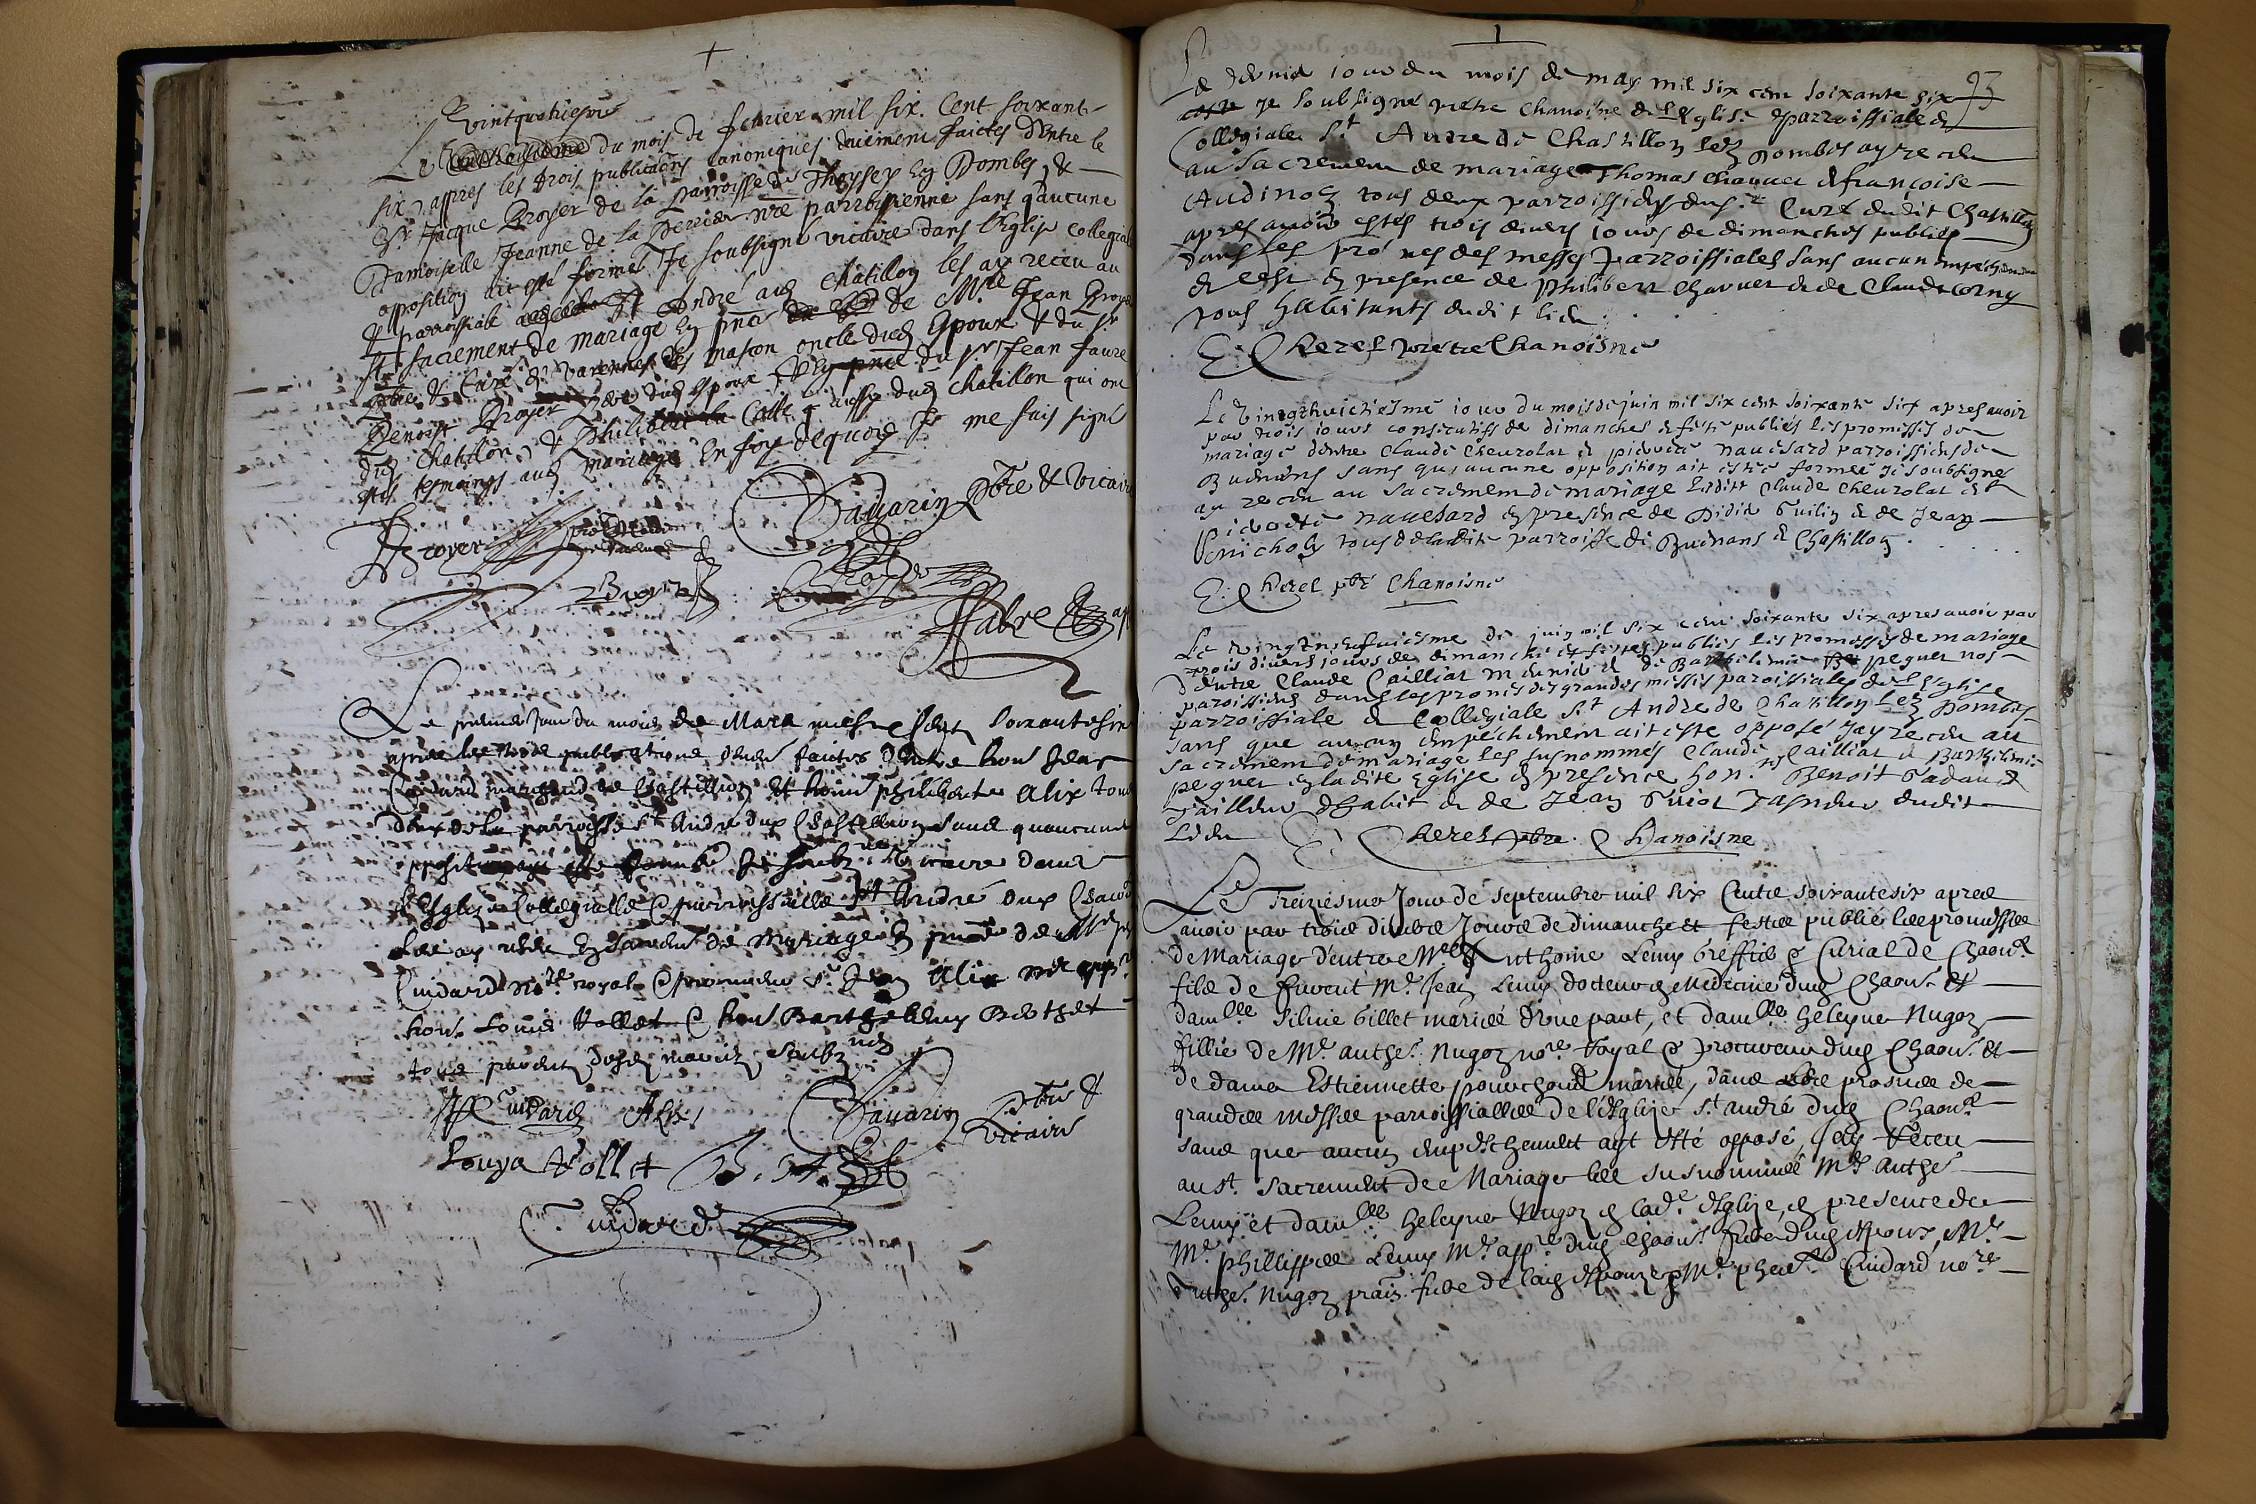 vintquatriesme
Le du mois de feburier mil six Cent soixant
six, appres les trois publicaōns canoniques deuement faictes d'entre le
Sr Jacque Broyer de la parroisse de Thoyssey En Dombes, &
Damoiselle Jeanne de la Perriere nre parroissienne sans qu'aucune
opposition ait esté formee Je soubsigné vicaire dans l'Eglise collegiale
& parroissiale St André dud Chatillon les ay receu au
St sacrement de mariage En pnce de Mre Jean Broyer
ptre & Curé de Varennes les mascon oncle dud Epoux & du sr
Benoist Broyer frere dud espoux du sr Jean faure
dud Chatillon, & Philibert la Calle aussy dud chatillon qui ont
estés tesmoings aud mariage En foye dequoy Je me suis signé
Broyer
Sauarin Ptre & Vicaire
Broyer
Fabre
Le premier Jour du mois de Mars mil six Cent soixante six
apres les trois publications deues faictes d'Entre hon Jean
Cuidard marchand de Chastillon Et honn philiberte Alix tous
deux de la parroisse St André dud Chastillon sans quaucune
opposition aye esté formee Je soubzne vicaire dans
l'Eglize Collegialle & parroissialle St André dud Chaon
les ay receu En sacremt de Mariage En pnce de Me
Cuidard nore royal & procureur sr Jean Alix me appre
hon. Louis Vollet & hon Barthelemy Berthet
tous parents desd mariez soubznes
Cuidard Alix Sauarin ptre &
vicaire
Louys Vollet
Cuidard
93
Le dernier iour du mois de may mil six cen soixante six
Je soubsigné prétre chanoine de l'Eglise parroissiale &
Collegiale St Andre de Chastillon lez Dombes ay receu
au sacremen de mariage Thomas chauuet & françoise
Audinon tous deux parroissiens dudit Chastillon
apres auoir estés trois diuers iours de dimanches publiés
dans les prónes des messes parroissiales sans aucun empeschemen
& cest en presence de philibert Chauuet & de Claude corny
tous habitants dudit lieu.
E Cheref prétre Chanoisne
Le vingthuictiesme iour du mois de juin mil six cent soixante six apres auoir
par trois iours consecutifs de dimanches & feste publiés les promesses de
mariage d'entre Claude cheurolat & pierrete nauesard parroissiens de
Buenens sans qu'aucune opposition ait estée formée je soubsigné
ay receu au sacremen de mariage lesdits Claude cheurolat &
Pierrete nauesard en presence de Didie Guilin & de Jean
Michon tous de ladite parroisse de Buenans & Chastillon.
E Cheref pbre Chanoisne
Le vingtneufuiesme de juin mil six cen soixante six apres auoir par
trois diuers iours de dimanche et festes publiés les promesses de mariage
d'entre Claude Cailliat meunier & de Barthelemie peguet nos
paroissiens dans les pronés des grandes messes paroissiales de l'Eglise
parroissiale & Collegiale St Andre de Chatillon lez Dombes
sans que aucun empéchemen ait este opposé jay receu au
sacremen de mariage les susnommés Claude Cailliat & Barthelemie
peguet en ladite Eglise en presence hon. Benoit Padaud
Tailleur d'habit & de Jean Guiot Tasneur dudit
Lieu
E Cheref pbre Chanoisne
Le Treiziesme Jour de septembre mil six Centz soixante six apres
auoir par trois diuers Jours de dimanche et festes publié les promesses
de Mariage d'entre Me Anthoine Leny Greffier & Curial de Chaon
filz de feuent Me Jean Leny docteur en Medecine dud Chaon &
damlle Siluie billet mariés d'vne part, et damlle heleyne Nugoz
fillie de Me anthe Nugoz nore Royal & procureur dud Chaon &
de dame Estiennette pourchoud mariés, dans les prosnes des
grandes messes parroissialles de l'Eglize St andré dud Chaon
sans que aucun empeschement ayt esté opposé, Jay Receu
au st. sacrement de Mariage les susnommés Me anthe
Leny et damlle heleyne Nugoz en lade Eglize, en presence de
Me phillippes Leny Me appre dud Chaon frere dud espoux, Me
anthe Nugoz frere de lad Espouze & Me phert Cuidard nore